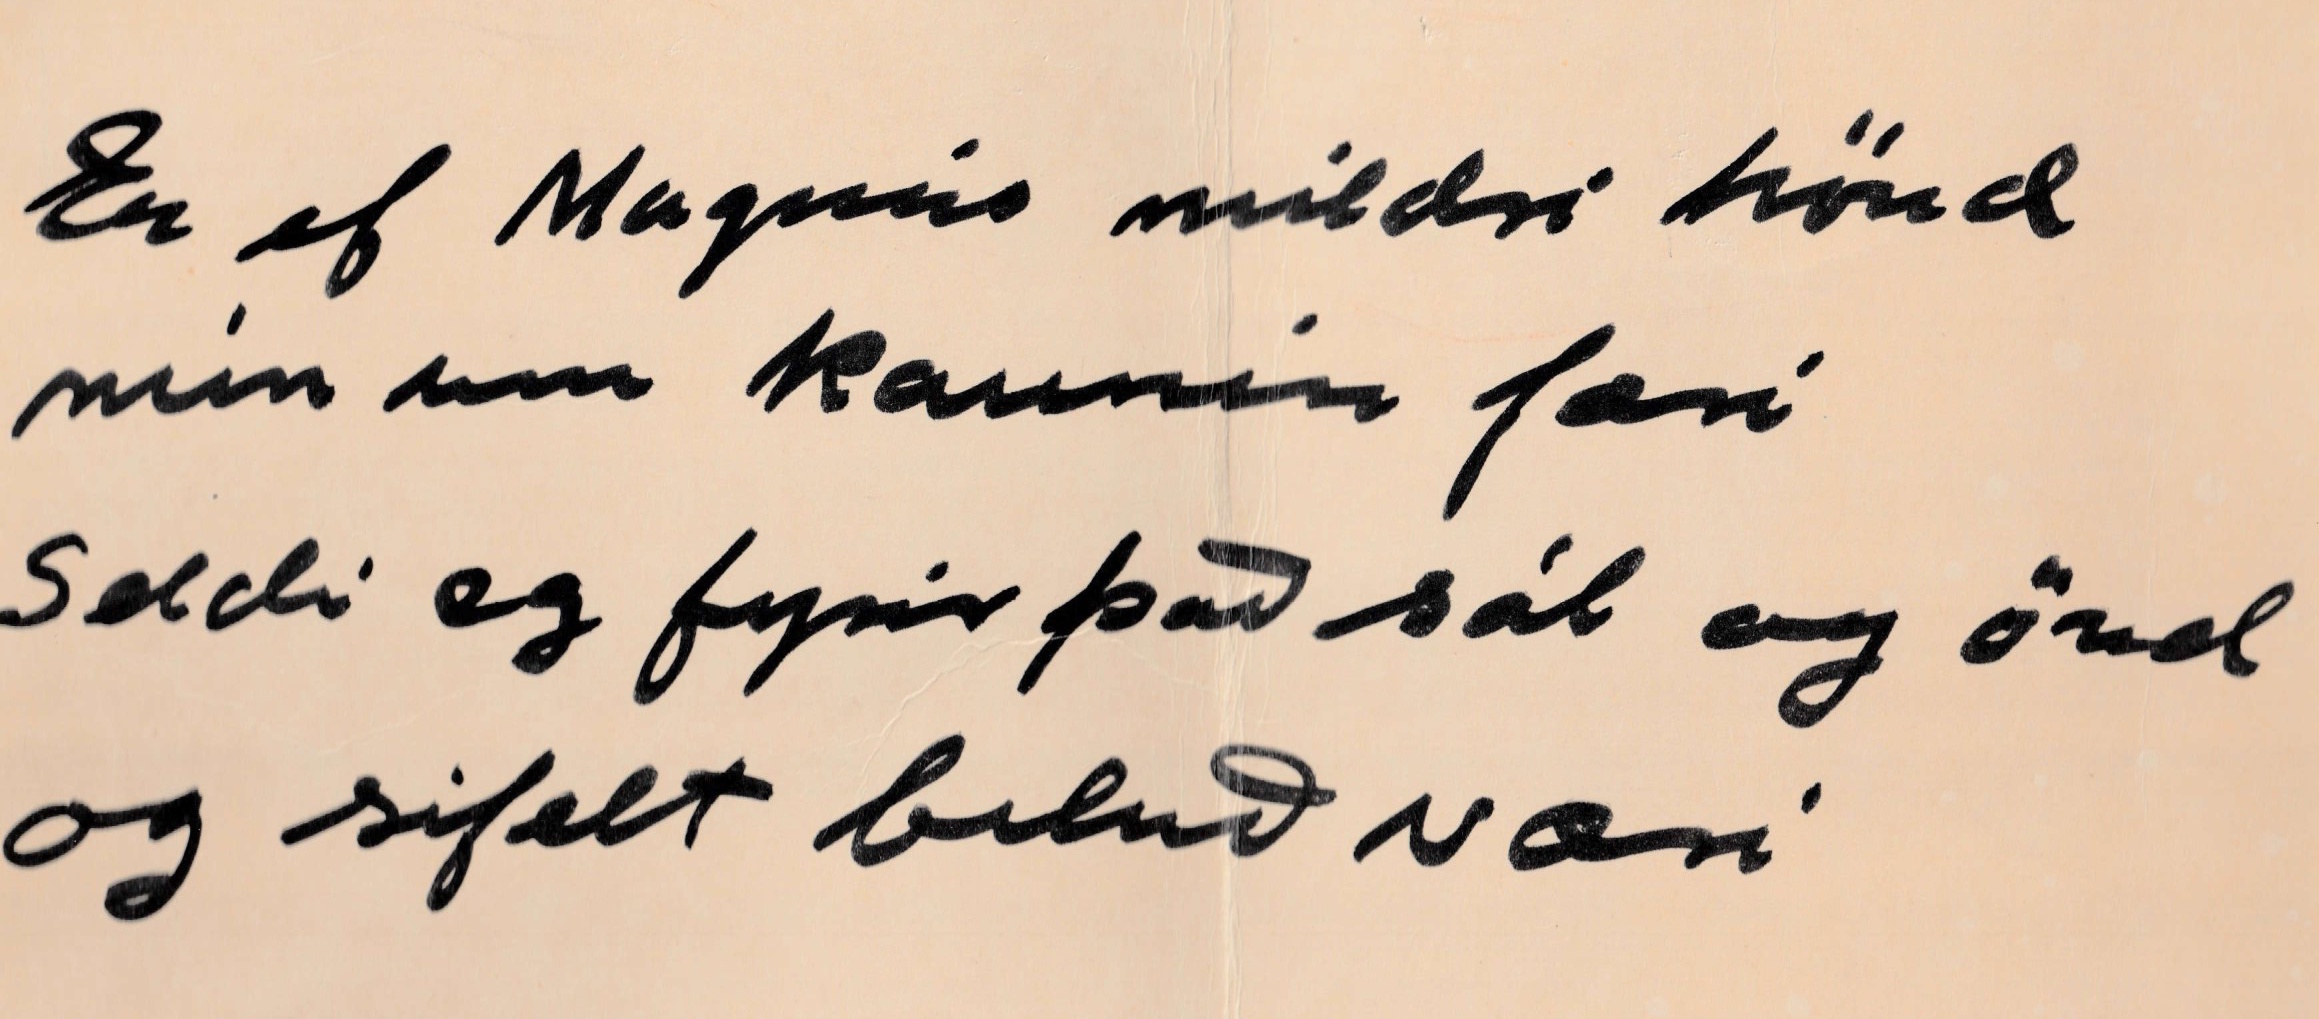 En ef Magnús mildri hönd
mín um kaunin færi
Seldi eg fyrir það sál og önd
og sífelt biluð væri